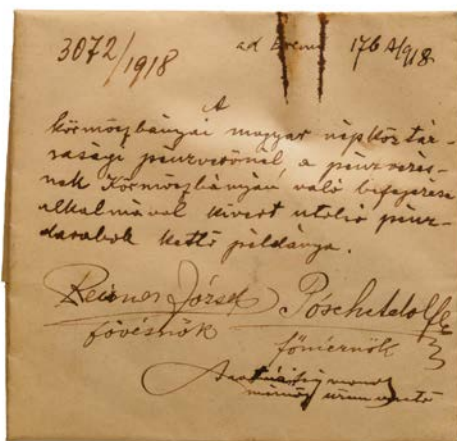 3072/1918 ad Brems 176 A/918
A
körmöczbányai magyar népköztár-
sasági pénzverőnél a pénzverés-
nek Körmöczbányán való befejezése
alkalmával kivert utolsó pénz-
darabok kettő példánya.
Reisner József Pöschl Adolf
fővésnök főmérnök